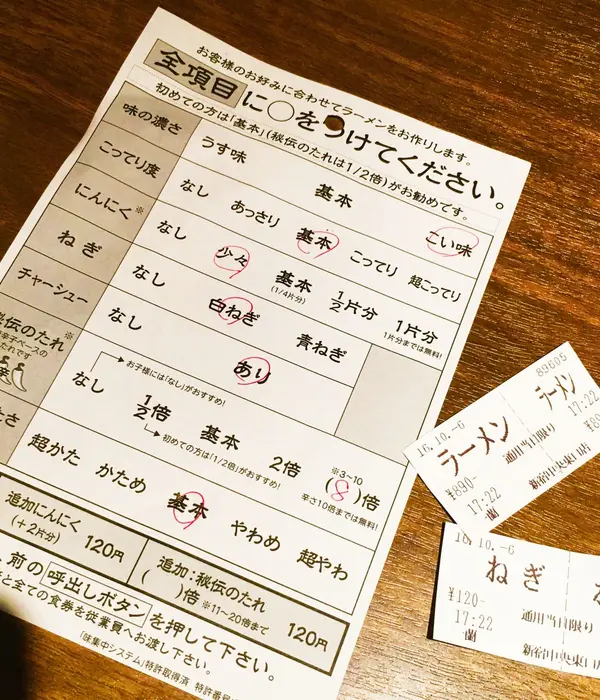 お客様のお好みに合わせてラーメンをお作りします。
全項目に○をつけてください。
初めての方は「基本」(秘伝のたれは1/2倍)がお勧めです。
味の濃さ うす味 基本 こい味
こってり度 なし あっさり 基本 こってり 超こってり
にんにく※ なし 少々 基本 1/2片分 1片分
(1/4片分) 1片分までは無料!
ねぎ なし 白ねぎ 青ねぎ
チャーシュー なし あり
お子様には「なし」がおすすめ!
秘伝のたれ※ なし 1/2倍 基本 2倍 (8)倍
辛子ベースの
たれです
※3~10
辛さ10倍までは無料!
初めての方は「1/2倍」がおすすめ!
たさ 超かた かため 基本 やわめ 超やわ
追加にんにく
(+2片分) 120円
追加:秘伝のたれ
( )倍 ※11~20倍まで 120円
前の呼出しボタンを押して下さい。
と全ての食券を従業員へお渡し下さい。
「味集中システム」特許取得済 特許番号
89605
16.10.-6
ラーメン
ラーメン
¥890-
通用当日限り
17:22
17:22
¥89
一蘭
新宿中央東口店
16.10.-6
ねぎ
¥120-
通用当日限り
17:22
一蘭
新宿中央東口店